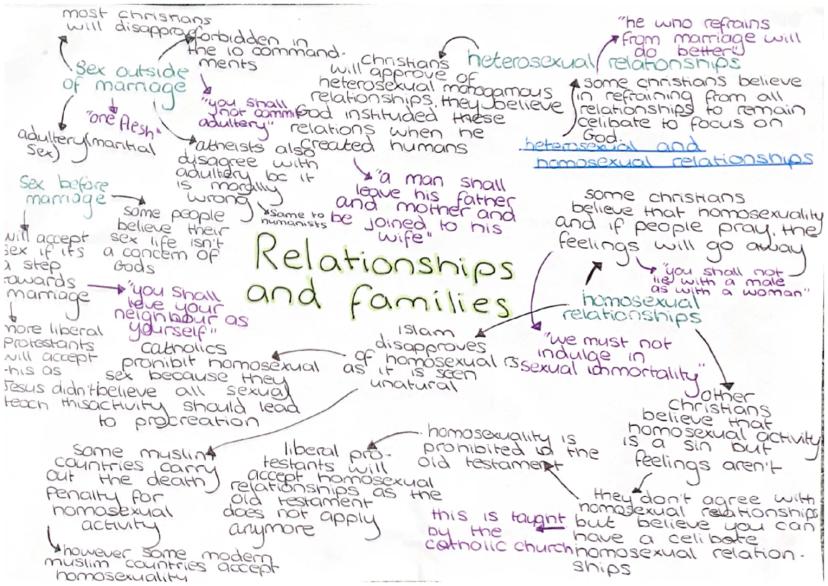 most christians
will disapprove
Sex outside
of marriage
"one flesh"
adultery (marital
sex)
forbidden in
the 10 command-
ments
"you shall
not commit
adultery"
atheists also
disagree with
adultery bc it
is morally
wrong
same to
humanists
Sex before
marriage
some people
believe their
sex life isn't
a concern of
Gods
will accept
sex if it's
a step
towards
marriage
"you shall
love your
neighbour as
yourself"
more liberal
Protestants
will accept
this as
Jesus didn't
teach this
heterosexual
relationships
Christians
will approve of
heterosexual monogamous
relationships. they believe
God instituted these
relations when he
created humans
"a man shall
leave his father
and mother and
be joined to his
wife"
"he who refrains
from marriage will
do better"
some christians believe
in refraining from all
relationships to remain
celibate to focus on
God
heterosexual and
homosexual relationships
Relationships
and families
homosexual
relationships
some christians
believe that homosexuality
and if people pray, the
feelings will go away
"you shall not
lie with a male
as with a woman"
"we must not
indulge in
sexual immortality"
islam
disapproves
of homosexual rs
as it is seen
unatural
Catholics
prohibit homosexual
sex because they
believe all sexual
activity should lead
to procreation
Some muslim
countries carry
out the death
penalty for
homosexual
activity
however some modern
muslim countries accept
homosexuality
other
christians
believe that
homosexual activity
is a sin but
feelings aren't
they don't agree with
homosexual relationships
but believe you can
have a celibate
homosexual relation-
ships
this is taught
by the
catholic church
homosexuality is
prohibited in the
old testament
liberal pro-
testants will
accept homosexual
relationships as the
old testament
does not apply
anymore